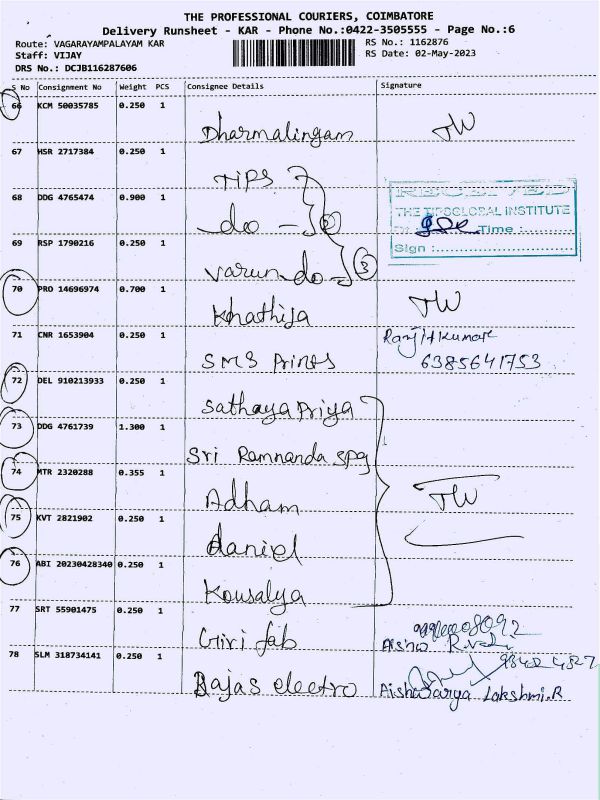 THE PROFESSIONAL COURIERS, COIMBATORE
Delivery Runsheet - KAR - Phone No.:0422-3505555 - Page No.:6
Route: VAGARAYAMPALAYAM KAR
RS No.: 1162876
Staff: VIJAY
RS Date: 02-May-2023
DRS No.: DCJB116287606
S No Consignment No Weight PCS Consignee Details Signature
66 KCM 50035785 0.250 1
Dharmalingam TW
67 HSR 2717384 0.250 1
TIPS
68 DDG 4765474 0.900 1
do 2
RECEIVED
THE TIPSGLOBAL INSTITUTE
Time :
Sign :
69 RSP 1790216 0.250 1
Varun do 3
70 PRO 14696974 0.700 1
Khathija TW
71 CNR 1653904 0.250 1
SMS Prints
Ranjithkumar
6385641753
72 DEL 910213933 0.250 1
Sathaya Priya
73 DDG 4761739 1.300 1
Sri Ramnanda spg
74 MTR 2320288 0.355 1
Adham TW
75 KVT 2821902 0.250 1
Daniel
76 ABI 20230428340 0.250 1
Kousalya
77 SRT 55901475 0.250 1
Giri fab
78 SLM 318734141 0.250 1
Rajas electro Aishwarya Lakshmi.R